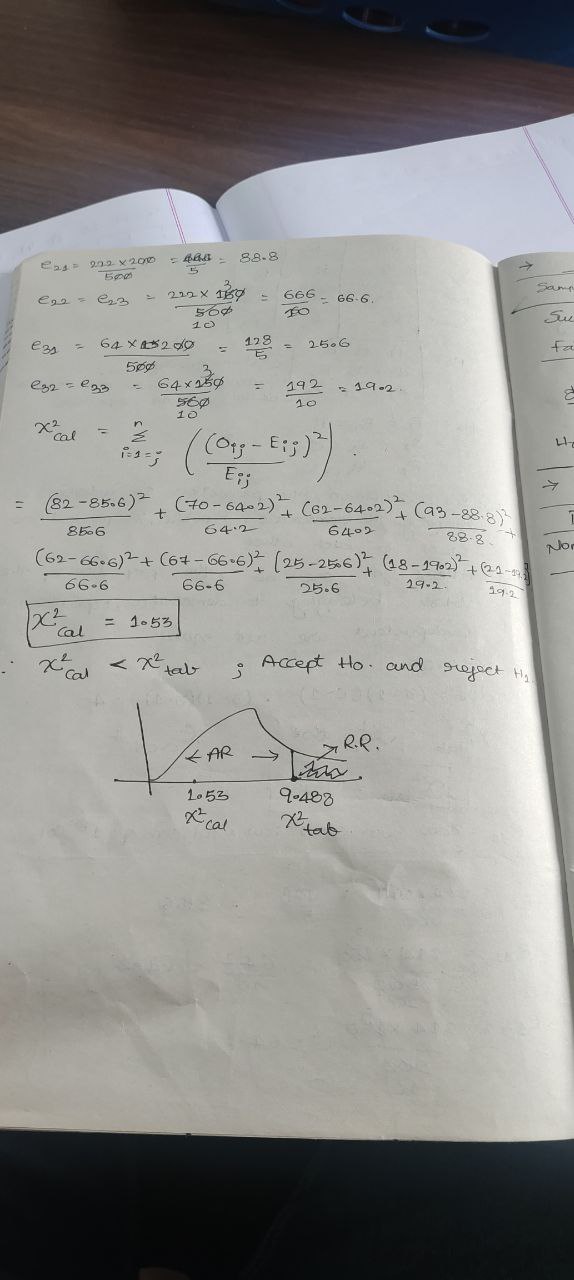 e21 = 222 × 200 / 500 = 444 / 5 = 88.8
e22 = e23 = 222 × 150 / 500 3 10 = 666 / 10 = 66.6.
e31 = 64 × 200 / 500 = 128 / 5 = 25.6
e32 = e33 = 64 × 150 / 500 3 10 = 192 / 10 = 19.2.
χ²cal = Σ n i=1=j ((Oij − Eij)² / Eij).
= (82 − 85.6)² / 85.6 + (70 − 64.2)² / 64.2 + (62 − 64.2)² / 64.2 + (93 − 88.8)² / 88.8. +
(62 − 66.6)² / 66.6 + (67 − 66.6)² / 66.6 + (25 − 25.6)² / 25.6 + (18 − 19.2)² / 19.2. + (21 − 19.2) / 19.2
χ²cal = 1.53
∴ χ²cal < χ²tab ; Accept Ho. and reject H1.
← AR → R.R.
1.53 9.488
χ²cal χ²tab
→
Sam
Su
fa
H
→
Non